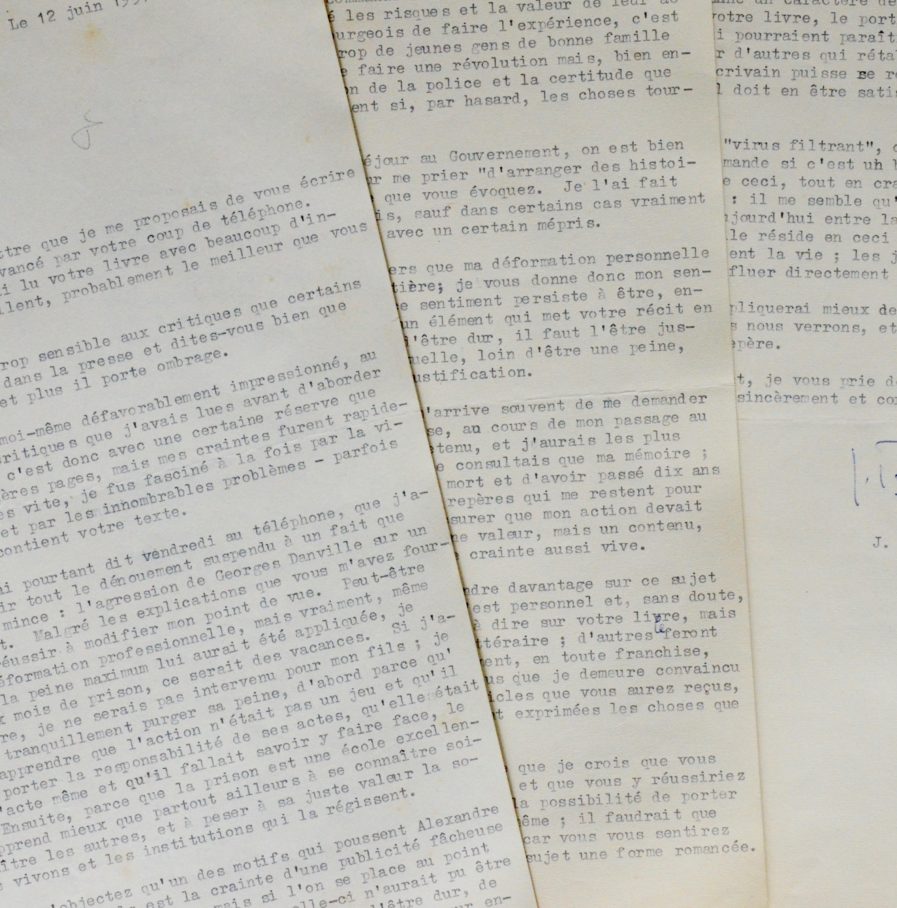 Le 12 juin 195
ttre que je me proposais de vous écrire
vancé par votre coup de téléphone.
i lu votre livre avec beaucoup d'in-
llent, probablement le meilleur que vous
rop sensible aux critiques que certains
dans la presse et dites-vous bien que
et plus il porte ombrage.
moi-même défavorablement impressionné, au
critiques que j'avais lues avant d'aborder
c'est donc avec une certaine réserve que
ères pages, mais mes craintes furent rapide-
es vite, je fus fasciné à la fois par la vi-
et par les innombrables problèmes - parfois
contient votre texte.
ai pourtant dit vendredi au téléphone, que j'a-
ir tout le dénouement suspendu à un fait que
mince : l'agression de Georges Danville sur un
t. Malgré les explications que vous m'avez four-
réussir à modifier mon point de vue. Peut-être
éformation professionnelle, mais vraiment, même
la peine maximum lui aurait été appliquée, je
x mois de prison, ce serait des vacances. Si j'a-
re, je ne serais pas intervenu pour mon fils ; je
tranquillement purger sa peine, d'abord parce qu'
apprendre que l'action n'était pas un jeu et qu'il
porter la responsabilité de ses actes, qu'elle était
l'acte même et qu'il fallait savoir y faire face, le
Ensuite, parce que la prison est une école excellen-
pprend mieux que partout ailleurs à se connaître soi-
ître les autres, et à peser à sa juste valeur la so-
vivons et les institutions qui la régissent.
'objectez qu'un des motifs qui poussent Alexandre
est la crainte d'une publicité fâcheuse
mais si l'on se place au point
elle-ci n'aurait pu être
d'être dur, de
en-
é les risques et la valeur de leur
urgeois de faire l'expérience, c'est
rop de jeunes gens de bonne famille
faire une révolution mais, bien en-
n de la police et la certitude que
ent si, par hasard, les choses tour-
éjour au Gouvernement, on est bien
r me prier "d'arranger des histoi-
que vous évoquez. Je l'ai fait
is, sauf dans certains cas vraiment
avec un certain mépris.
ers que ma déformation personnelle
tière; je vous donne donc mon sen-
e sentiment persiste à être, en-
un élément qui met votre récit en
'être dur, il faut l'être jus-
uelle, loin d'être une peine,
ustification.
'arrive souvent de me demander
se, au cours de mon passage au
tenu, et j'aurais les plus
e consultais que ma mémoire ;
mort et d'avoir passé dix ans
repères qui me restent pour
surer que mon action devait
ne valeur, mais un contenu,
crainte aussi vive.
ndre davantage sur ce sujet
est personnel et, sans doute,
à dire sur votre livre, mais
ttéraire ; d'autres le feront
ent, en toute franchise,
us que je demeure convaincu
icles que vous aurez reçus,
t exprimées les choses que
que je crois que vous
et que vous y réussiriez
la possibilité de porter
ême ; il faudrait que
car vous vous sentirez
sujet une forme romancée.
un caractère de
votre livre, le port
i pourraient paraît
r d'autres qui réta
crivain puisse se r
l doit en être satis
"virus filtrant",
mande si c'est uh
e ceci, tout en cra
: il me semble qu'
ujourd'hui entre la
le réside en ceci
ent la vie ; les j
fluer directement
pliquerai mieux de
s nous verrons, et
epère.
t, je vous prie de
sincèrement et co
J.